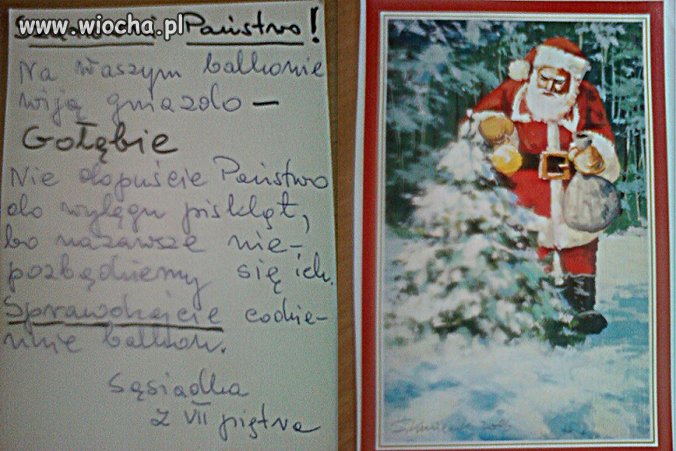 www.wiocha.pl
Państwo!
Na Waszym balkonie
wiją gniazdo —
Gołębie
Nie dopuście Państwo
do wylęgu piskląt,
bo nazawsze nie-
pozbędziemy się ich.
Sprawdzajcie codzie-
nnie balkon.
Sąsiadka
z VII piętra